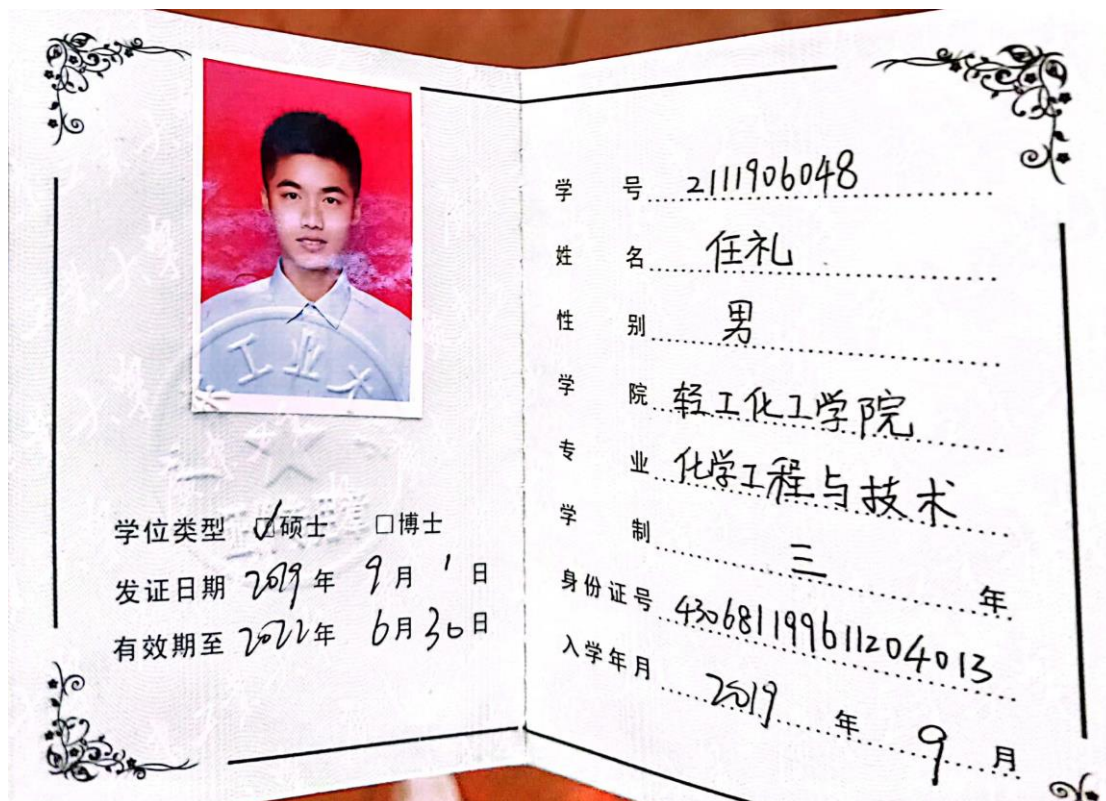 工业大
学位类型 ☑硕士 □博士
发证日期 2019年 9月 1日
有效期至 2022年 6月30日
学号 2111906048
姓名 任礼
性别 男
学院 轻工化工学院
专业 化学工程与技术
学制 三 年
身份证号 430681199611204013
入学年月 2019 年 9 月